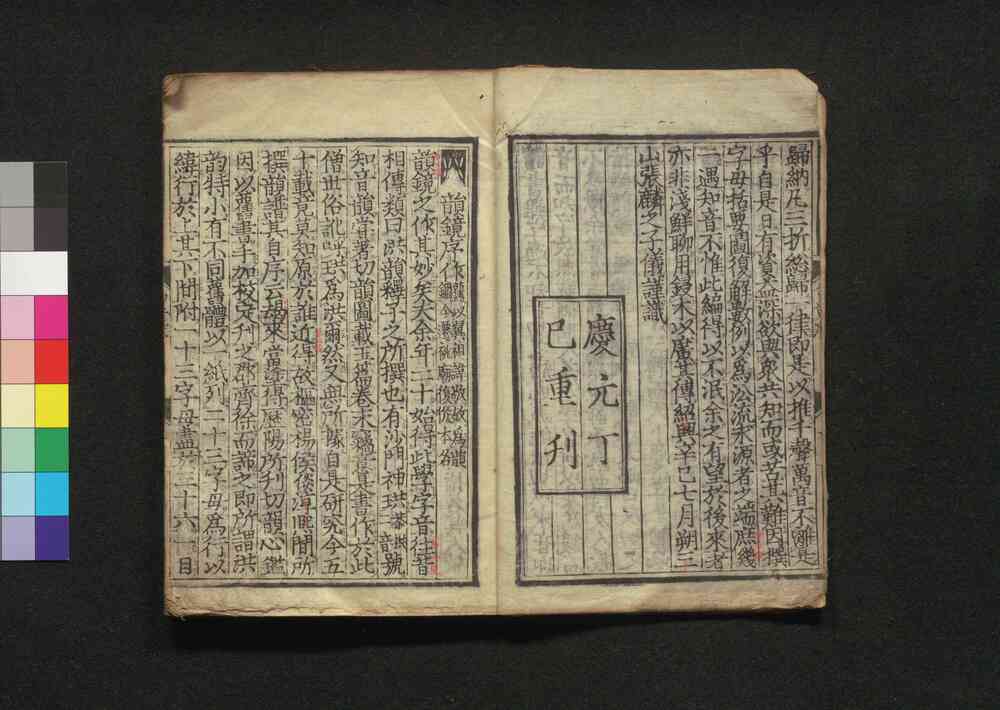 歸納凡三折總歸一律即是以推千聲萬音不離是
乎自是日有資益深欲與衆共知而或苦其難因撰
字母括要圖復解數例以爲沿流求源者之端庶幾
一遇知音不惟此編得以不泯余之有望於後來者
亦非淺鮮聊用鋟木以廣其傳紹興辛巳七月朔三
山張麟之子儀謹識
慶元丁
巳重刋
韻鏡序作
韻鏡之作其妙矣夫余年二十始得此學字音徃昔
相傳類曰洪韻釋子之所撰也有沙門神珙號
知音韻嘗著切韻圖載玉篇卷末竊意是書作於此
僧世俗訛呼珙爲洪爾然又無所據自是研究今五
十載竟莫知原於誰近得故樞密楊侯倓淳熙間所
撰韻譜其自序云朅來當塗得歷陽所刋切韻心鑑
因以舊書手加校定刋之郡齋徐而諦之即所謂洪
韵特小有不同舊體以一紙列二十三字母爲行以
緯行於上其下間附一十三字母盡於三十六一目